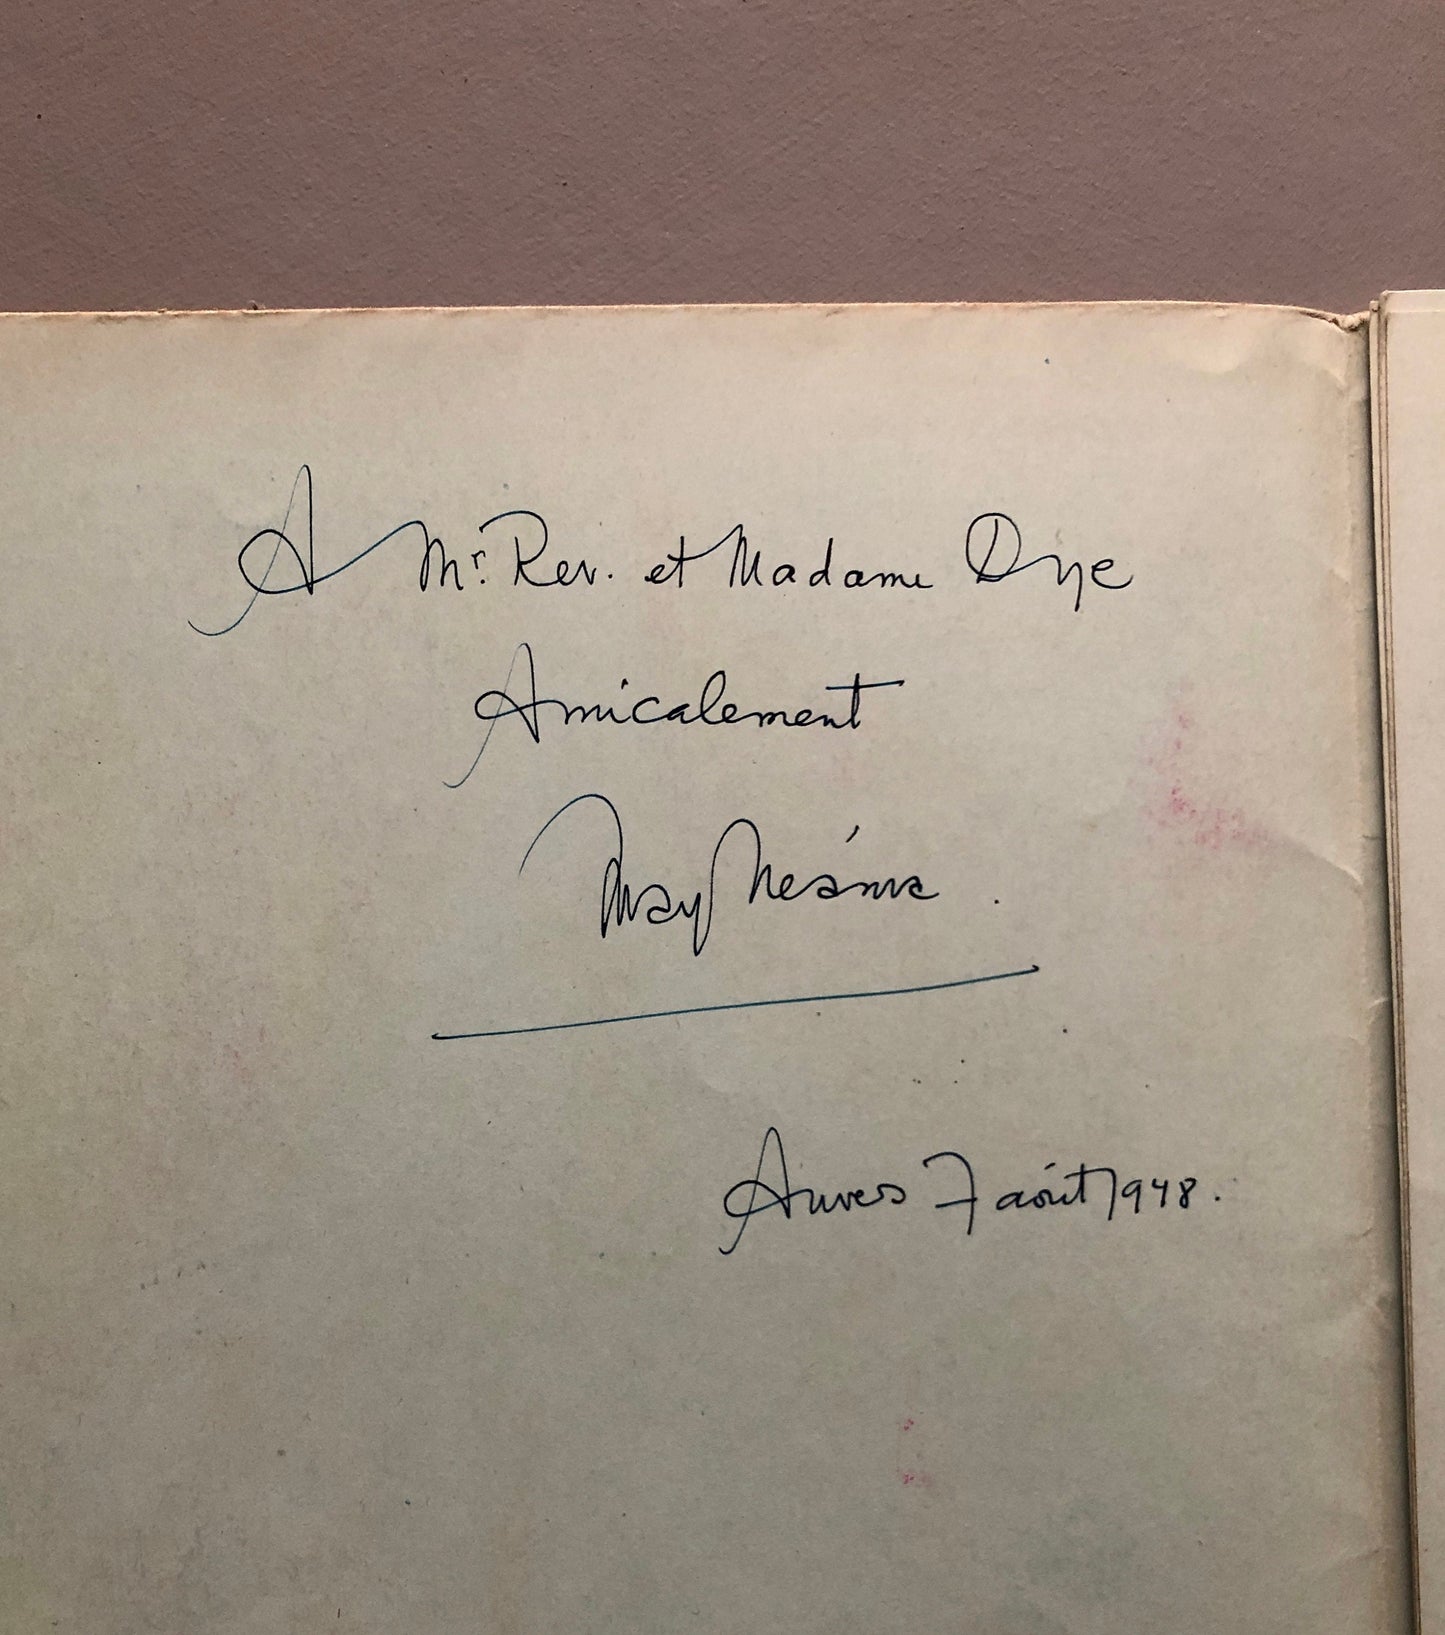 A Mr. Rev. et Madame Dye
Amicalement
May Néama.
Anvers 7 août 1948.